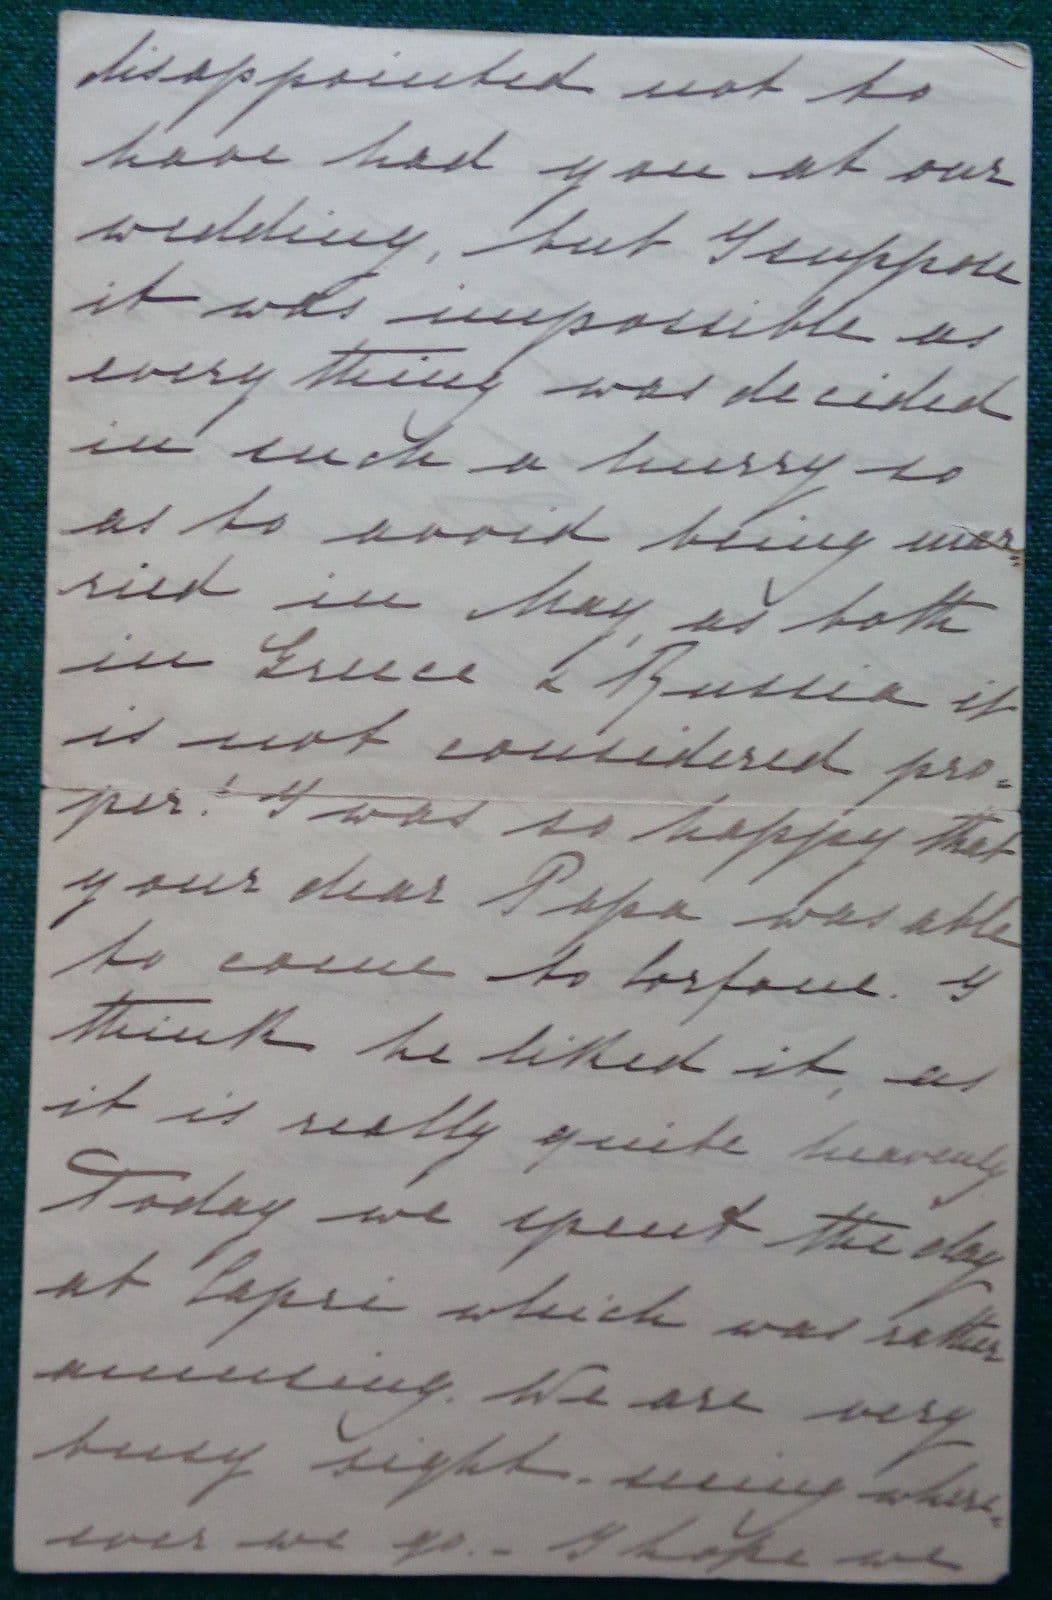 disappointed not to
have had you at our
wedding, but I suppose
it was impossible as
every thing was decided
in such a hurry so
as to avoid being mar-
ried in May, as both
in Greece & Russia it
is not considered pro-
per! I was so happy that
your dear Papa was able
to come to Corfone. I
think he liked it, as
it is really quite heavenly
Today we spent the day
at Capri which was rather
amusing. We are very
busy sight-seeing where-
ever we go. - I hope we